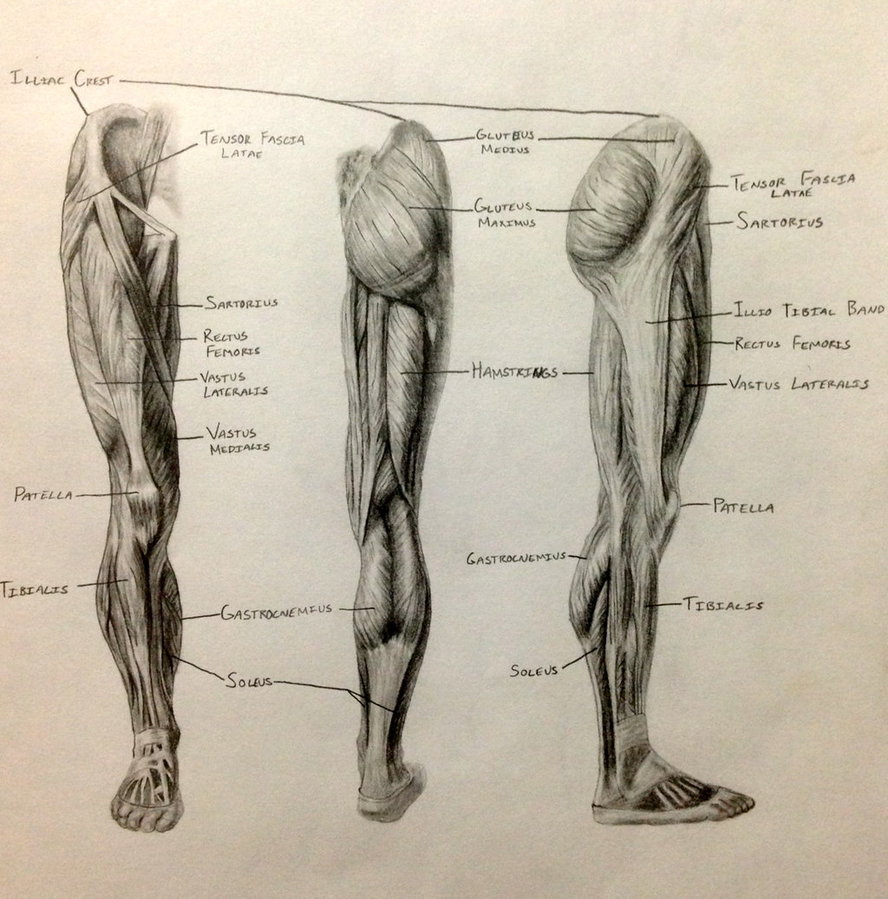 ILLIAC CREST
TENSOR FASCIA
LATAE
SARTORIUS
RECTUS
FEMORIS
VASTUS
LATERALIS
VASTUS
MEDIALIS
PATELLA
TIBIALIS
GASTROCNEMIUS
SOLEUS
GLUTEUS
MEDIUS
GLUTEUS
MAXIMUS
HAMSTRINGS
TENSOR FASCIA
LATAE
SARTORIUS
ILLIO TIBIAL BAND
RECTUS FEMORIS
VASTUS LATERALIS
PATELLA
GASTROCNEMIUS
TIBIALIS
SOLEUS